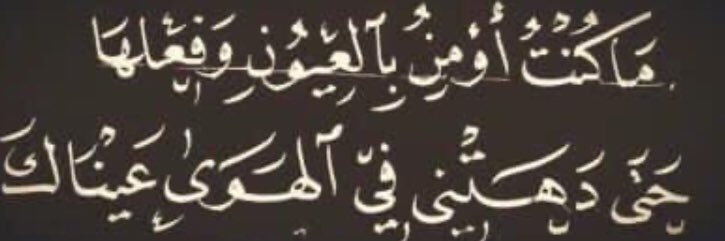 مَا كُنْتُ أُؤْمِنُ بِٱلْعُيُونِ وَفِعْلِهَا
حَتَّى دَهَتْنِي فِي ٱلْهَوَىٰ عَيْنَاكَ